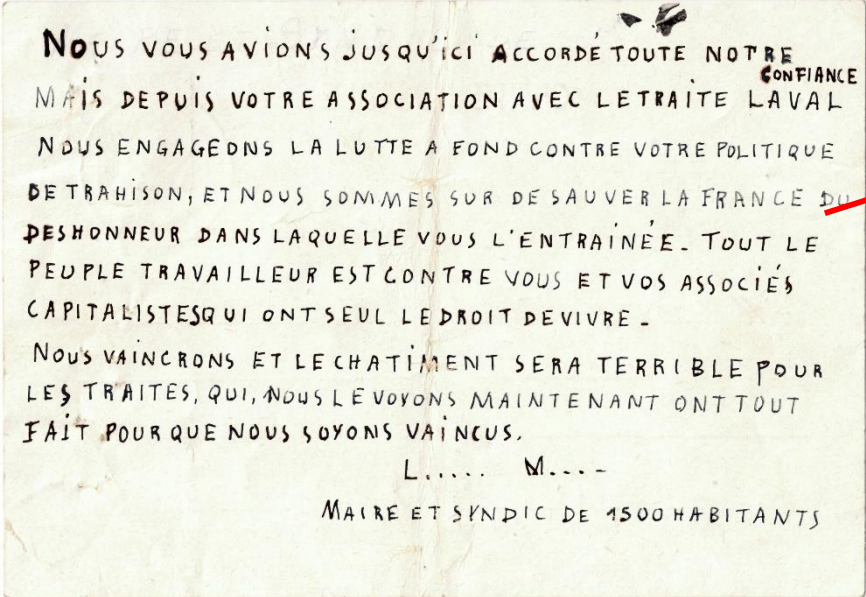 NOUS VOUS AVIONS JUSQU'ICI ACCORDÉ TOUTE NOTRE
CONFIANCE
MAIS DEPUIS VOTRE ASSOCIATION AVEC LE TRAITE LAVAL
NOUS ENGAGEONS LA LUTTE A FOND CONTRE VOTRE POLITIQUE
DE TRAHISON, ET NOUS SOMMES SUR DE SAUVER LA FRANCE DU
DESHONNEUR DANS LAQUELLE VOUS L'ENTRAINÉE. TOUT LE
PEUPLE TRAVAILLEUR EST CONTRE VOUS ET VOS ASSOCIÉS
CAPITALISTES QUI ONT SEUL LE DROIT DE VIVRE.
NOUS VAINCRONS ET LE CHATIMENT SERA TERRIBLE POUR
LES TRAITES, QUI, NOUS LE VOYONS MAINTENANT ONT TOUT
FAIT POUR QUE NOUS SOYONS VAINCUS.
L..... M....
MAIRE ET SYNDIC DE 1500 HABITANTS